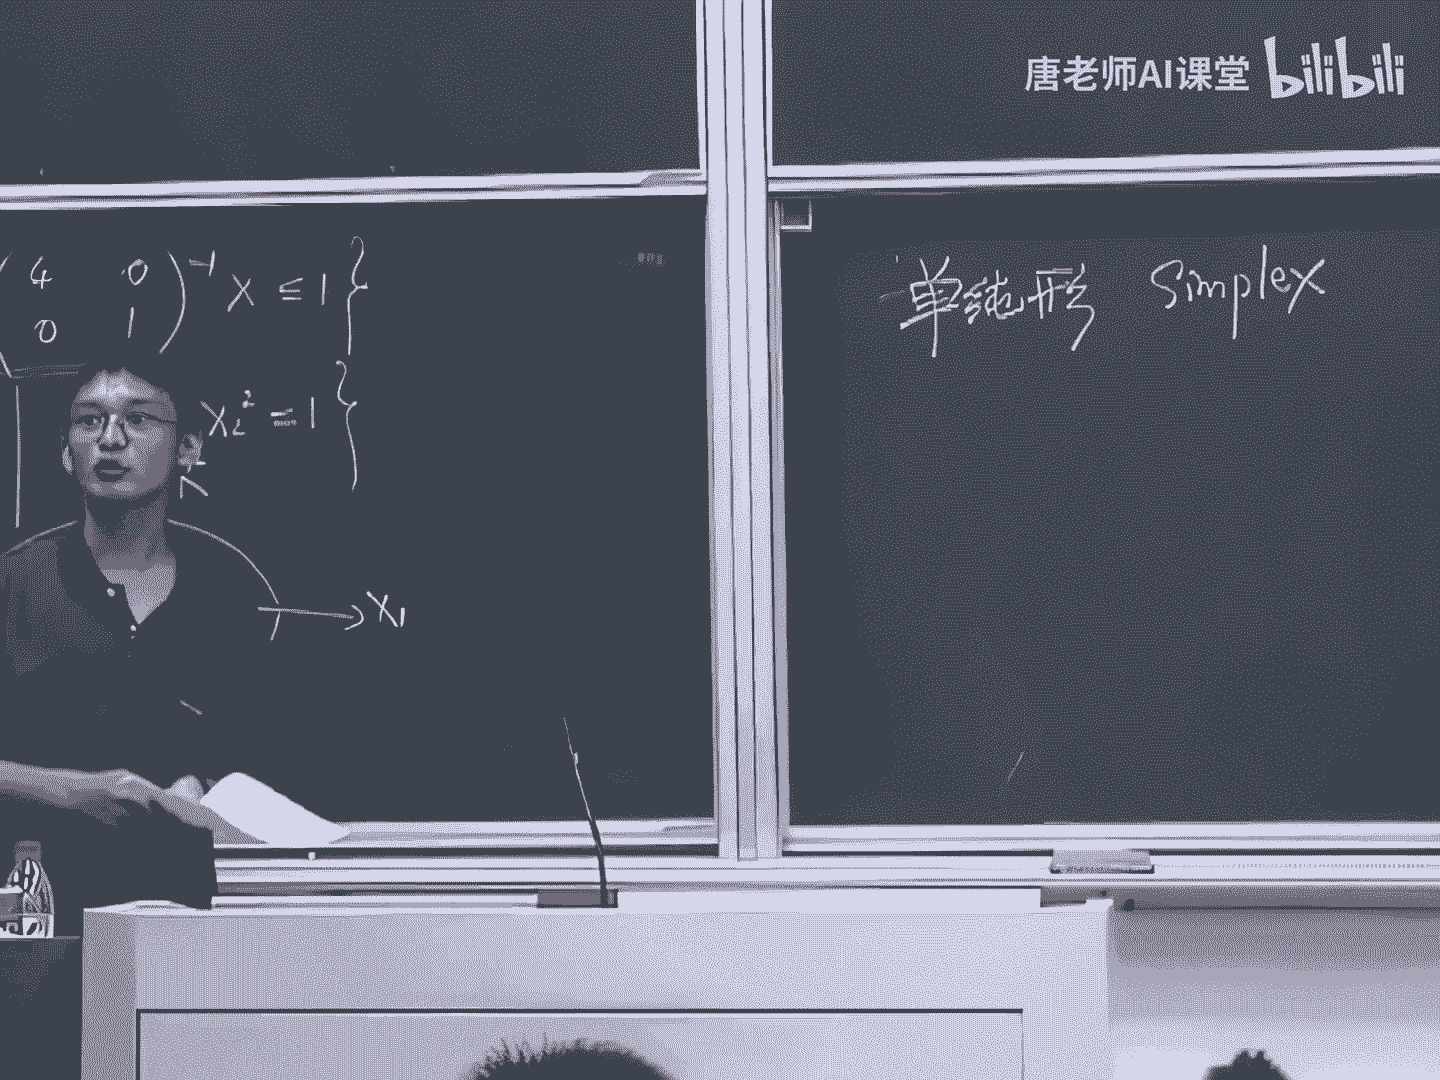 唐老师AI课堂 bilibili
( 4 0
0 1 )⁻¹ X ≤ 1 }
X₂² ≤ 1 }
X₁
单纯形 Simplex